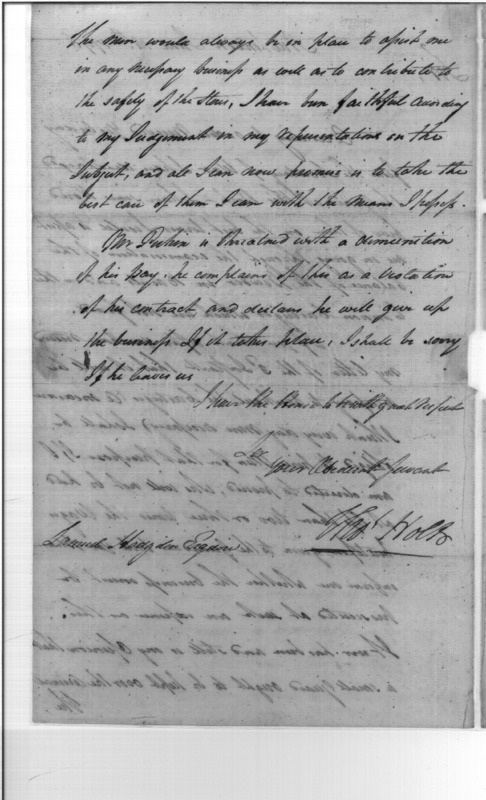 The men would always be in place to assist me
in any necessary business as well as to contribute to
the safety of the Stores, I have been faithful according
to my Judgement in my representations on the
Subject, and all I can now promise is to take the
best care of them I can with the means I possess.
Mr is threatned with a diminution
of his pay. he complains of this as a violation
of his contract and declares he will give up
the business If it takes place, I shall be sorry
If he leaves us
I have the Honor to be with great respect
your Obedient Servant
Holt
Samuel Hodgdon Esquire